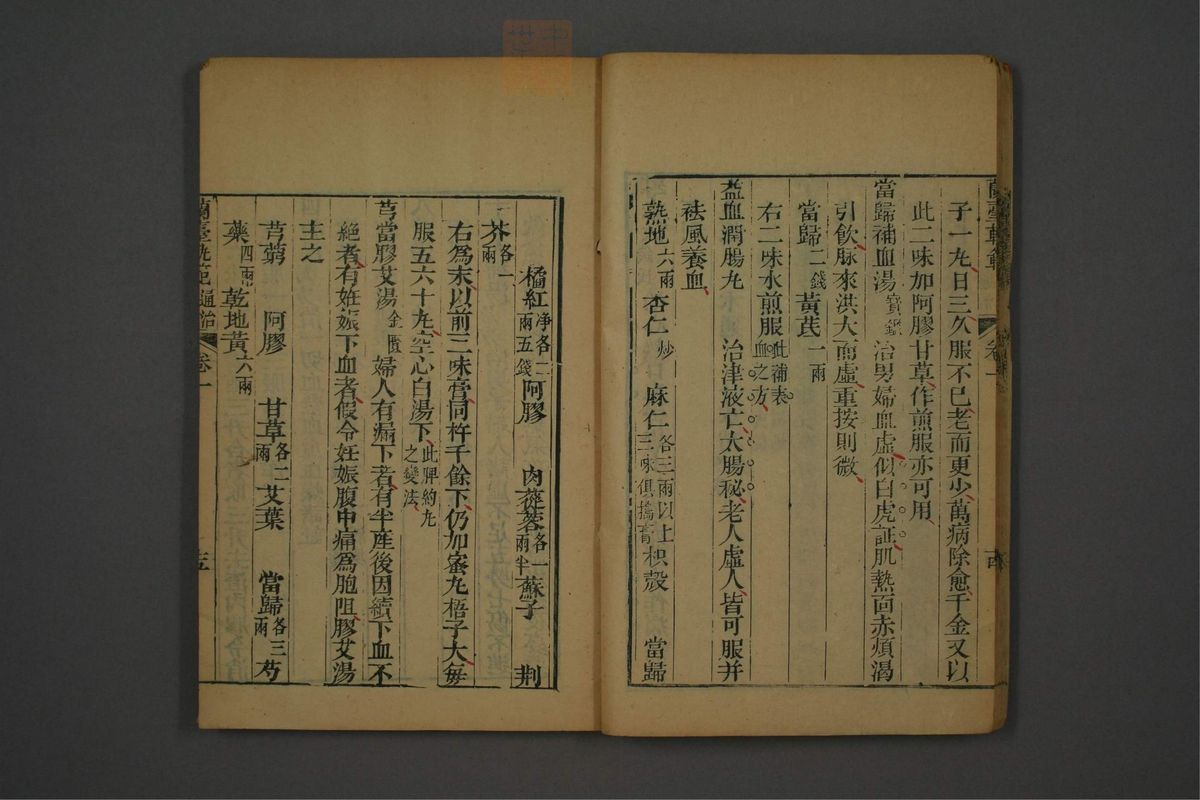 子一丸日三久服不已老而更少萬病除愈千金又以
此二味加阿膠甘草作煎服亦可用
當歸補血湯寶鑑治男婦血虛似白虎証肌熱面赤煩渴
引飲脉來洪大而虛重按則微
當歸二錢黃芪一兩
右二味水煎服此補表血之方
益血潤腸丸 治津液亡大腸秘老人虛人皆可服并
祛風養血
熟地六兩 杏仁炒 麻仁各三兩以上三味俱搗膏 枳殼 當歸
橘紅淨各二兩五錢阿膠 肉蓯蓉各一兩半蘇子 荆
芥各一兩
右爲末以前三味膏同杵千餘下仍加蜜丸梧子大每
服五六十丸空心白湯下此脾約丸之變法
芎當膠艾湯金匱 婦人有漏下者有半產後因續下血不
絕者有妊娠下血者假令妊娠腹中痛爲胞阻膠艾湯
主之
芎藭 阿膠 甘草各二兩 艾葉 當歸各三兩 芍
藥四兩 乾地黃六兩
蘭臺軌範 通治 卷一